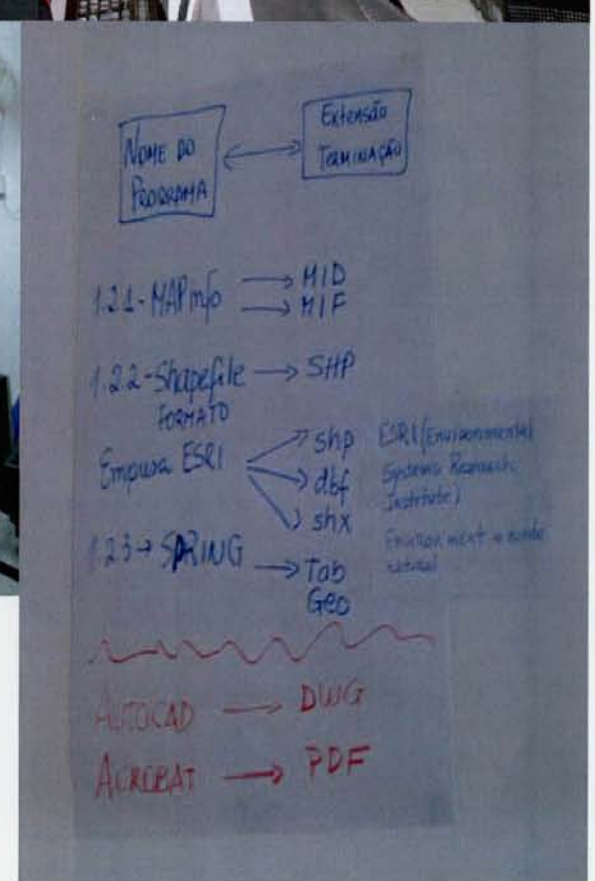 NOME DO
PROGRAMA
Extensão
TERMINAÇÃO
1.2.1- MAPinfo → MID
→ MIF
1.2.2- Shapefile → SHP
FORMATO
Empresa ESRI
shp
dbf
shx
ESRI (Environmental
Systems Research
Institute)
natural
1.2.3 → SPRING → Tab
Geo
AUTOCAD → DWG
ACROBAT → PDF